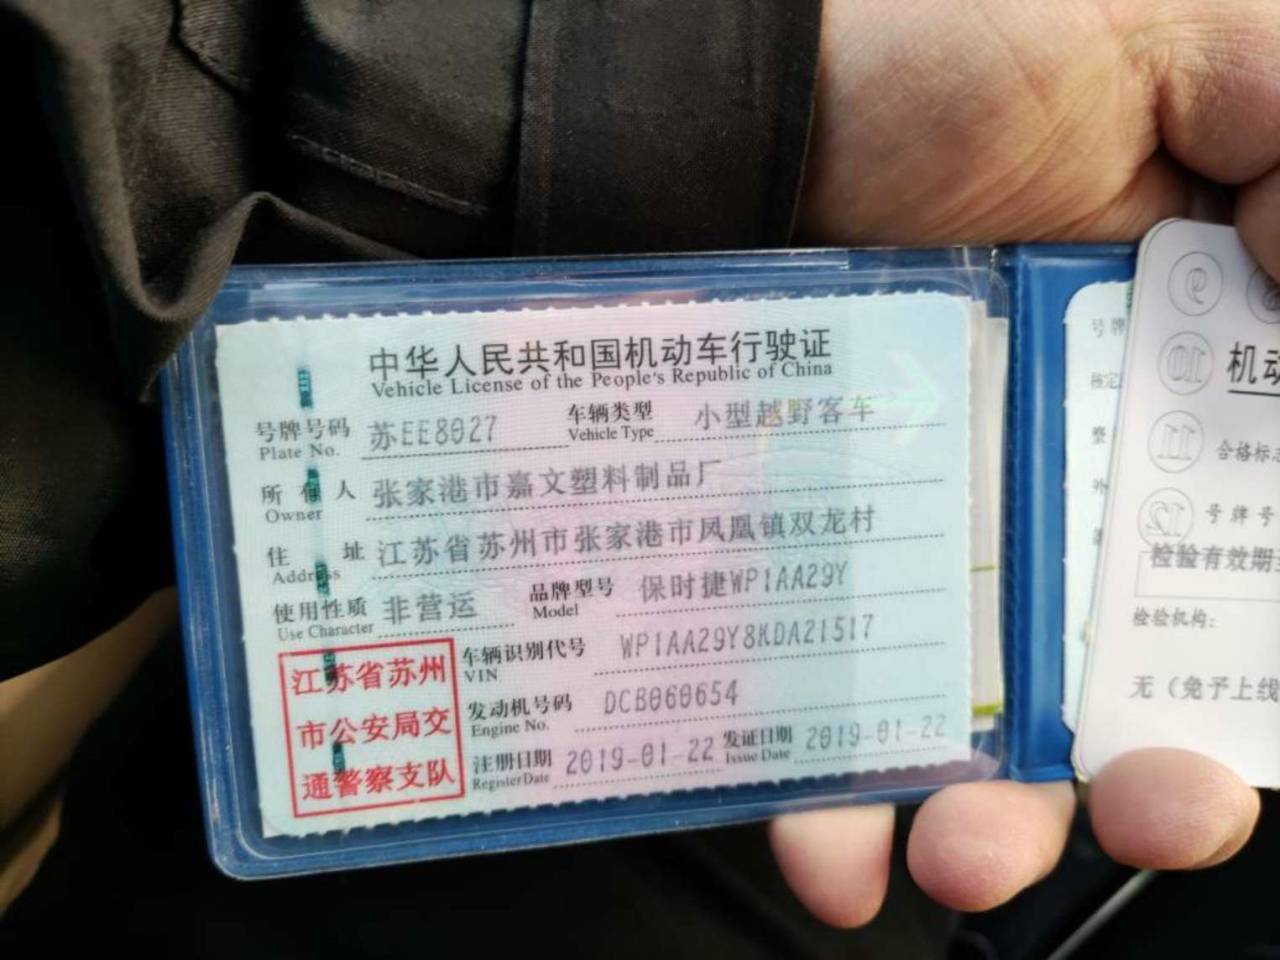 中华人民共和国机动车行驶证
Vehicle License of the People's Republic of China
号牌号码 苏EE8027 车辆类型 小型越野客车
Plate No. Vehicle Type
所有人 张家港市嘉文塑料制品厂
Owner
住址 江苏省苏州市张家港市凤凰镇双龙村
Address
使用性质 非营运 品牌型号 保时捷WP1AA29Y
Use Character Model
江苏省苏州
市公安局交
通警察支队
车辆识别代号 WP1AA29Y8KDA21517
VIN
发动机号码 DCB060654
Engine No.
注册日期 2019-01-22 发证日期 2019-01-22
Register Date Issue Date
号牌
核定
整
外
9
10
11
12
机动
合格标志
号牌号
检验有效期至
检验机构:
无（免予上线